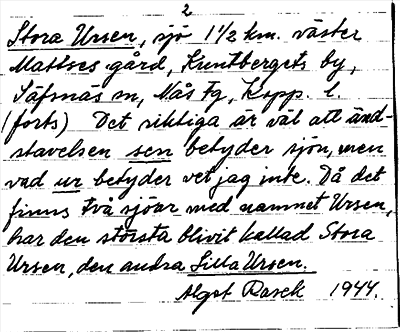 2
Stora Ursen, sjö 1 1/2 km. väster
Mattses gård, Kuntbergets by,
Säfsnäs sn, Nås tg, Kopp. l.
(forts) Det riktiga är väl att änd-
stavelsen sen betyder sjön, men
vad ur betyder vet jag inte. Då det
finns två sjöar med namnet Ursen,
har den största blivit kallad Stora
Ursen, den andra Lilla Ursen.
Algot Rasck 1944.